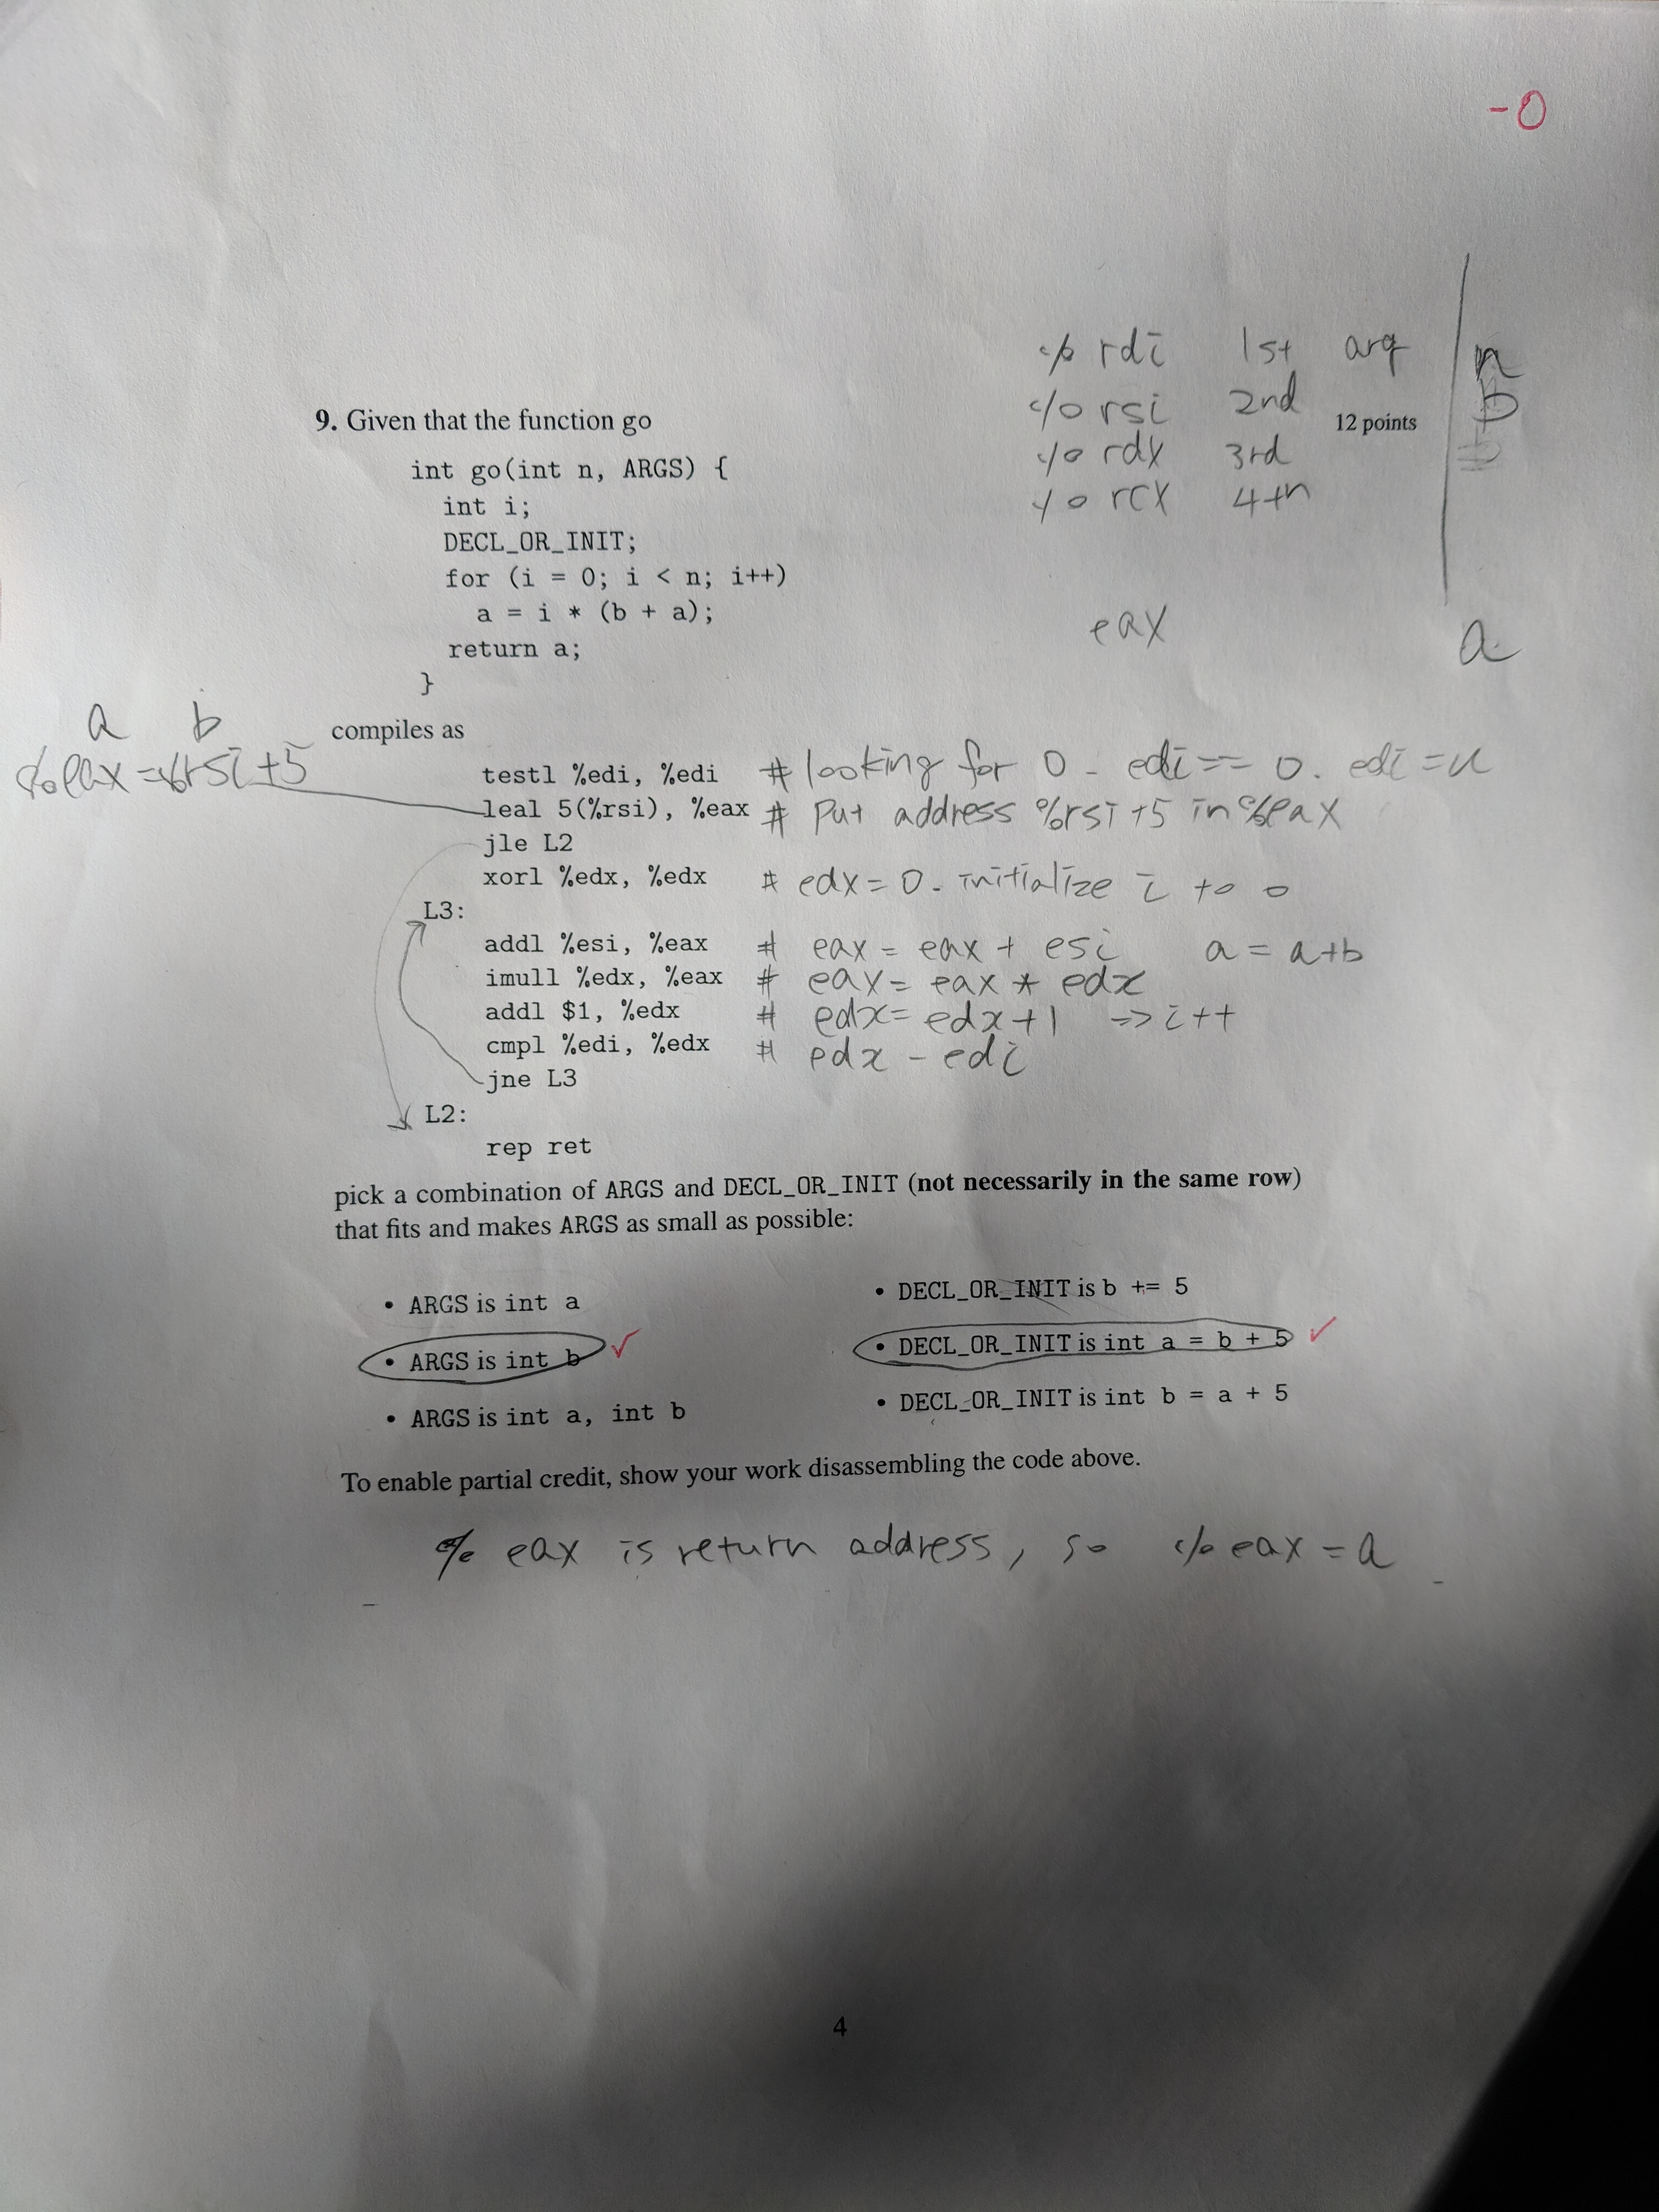 -0
% rdi 1st arg n
9. Given that the function go
% rsi 2nd 12 points b
% rdx 3rd
% rcx 4th
int go(int n, ARGS) {
int i;
DECL_OR_INIT;
for (i = 0; i < n; i++)
a = i * (b + a);
return a;
}
eax a
a b
%eax = %rsi+5
compiles as
testl %edi, %edi # looking for 0 - edi == 0. edi = n
leal 5(%rsi), %eax # Put address %rsi +5 in %eax
jle L2
xorl %edx, %edx # edx = 0 - initialize i to 0
L3:
addl %esi, %eax # eax = eax + esi a = a+b
imull %edx, %eax # eax = eax * edx
addl $1, %edx # edx = edx+1 => i++
cmpl %edi, %edx # edx - edi
jne L3
L2:
rep ret
pick a combination of ARGS and DECL_OR_INIT (not necessarily in the same row)
that fits and makes ARGS as small as possible:
• ARGS is int a
• DECL_OR_INIT is b += 5
• ARGS is int b ✓
• DECL_OR_INIT is int a = b + 5 ✓
• ARGS is int a, int b
• DECL_OR_INIT is int b = a + 5
To enable partial credit, show your work disassembling the code above.
% eax is return address, so % eax = a
4